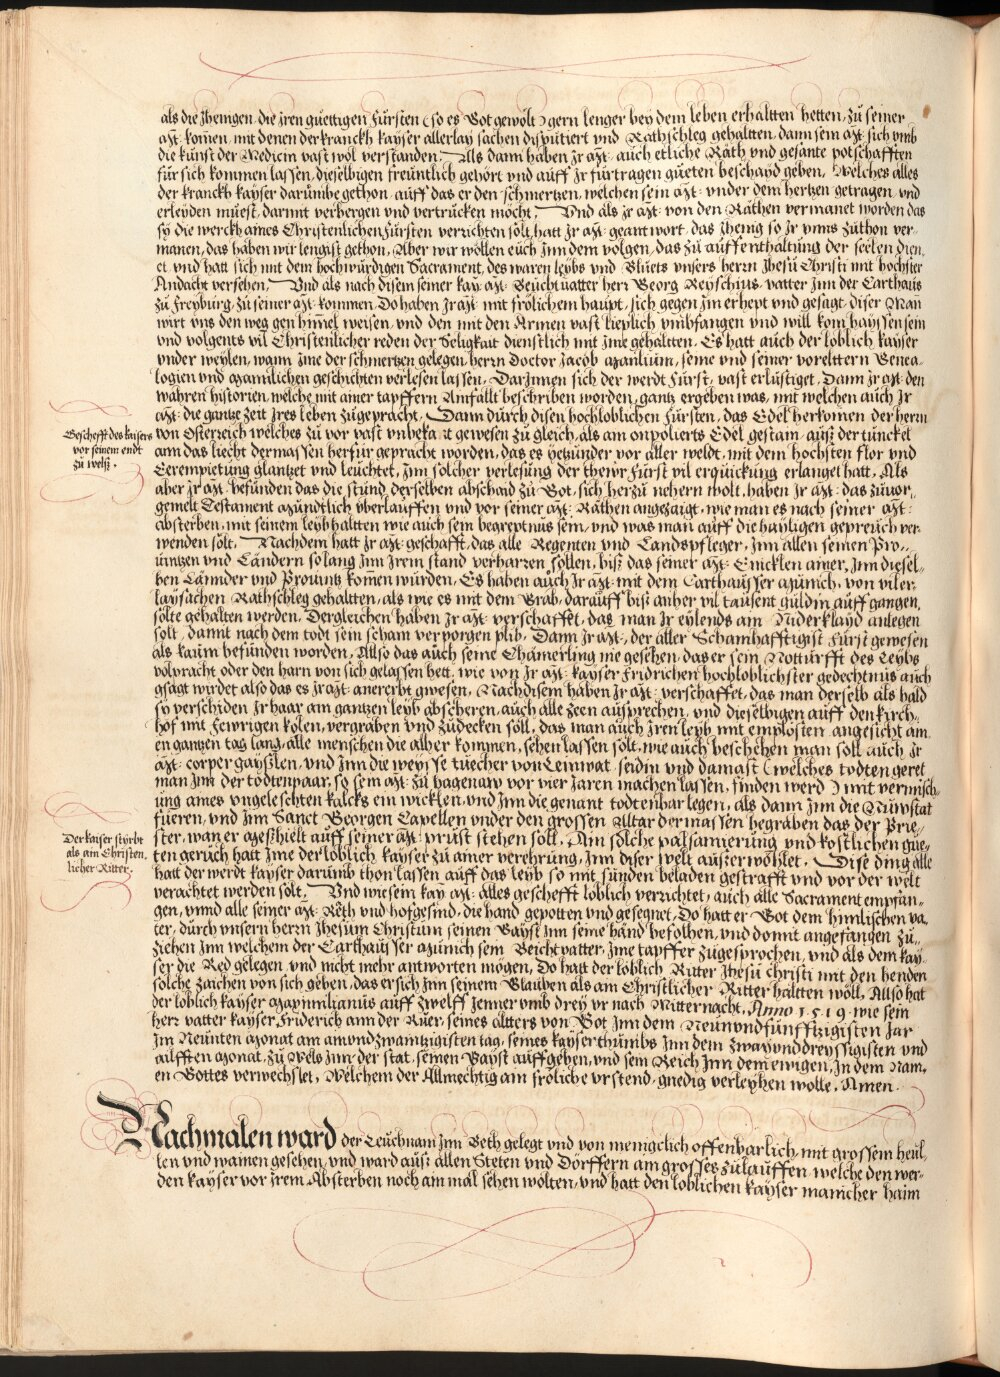 als die Jhenigen, die jren guettigen Fürsten (so es Got gewölt) gern lenger bey dem leben erhaltten hetten, Zů seiner
Mt: komen, mit denen der kranckh kayser allerlay sachen disputiert vnd Rathschleg gehaltten, dann sein Mt: sich vmb
die kunst der Medicin vast wol verstanden. Als dann haben Jr Mt: auch etliche Räth vnd gesante potschafften
für sich kommen lassen, dieselbigen freuntlich gehört vnd auff Jr fürtragen güeten beschayd geben, Welches alles
der kranckh kayser darumbe gethon, auff das er den schmertzen, welchen sein Mt: vnder dem hertzen getragen vnd
erleyden müest, darmit verbergen vnd vertrucken möcht. Vnd als Jr Mt: von den Räthen vermanet worden das
sy die werckh aines Christenlichen Fürsten verrichten sölt, hatt Jr Mt: geantwort, das Jhenig so Jr vnns zuthon ver-
manen, das haben wir lengist gethon, Aber wir wöllen euch Jnn dem volgen, das zu auffenthaltung der seelen dien,
et, vnd hatt sich mit dem hochwürdigen Sacrament, des waren leybs vnd Bluets vnsers herrn Jhesu Christi mit hochster
Andacht versehen. Vnd als nach disem seiner kay: Mt: Beuchtuatter herr Georg Reyschius, vatter Jnn der Carthaus
zu Freyburg, zu seiner Mt: kommen, Do haben Jr Mt: mit frölichem haupt, sich gegen Jm erhept vnd gesagt, diser Man
wirt vns den weg gen himel weisen, vnd den mit den Armen vast lieplich vmbfangen vnd will kom hayssen sein
vnd volgents vil Christenlicher reden der Seligkait dienstlich mit Jme gehaltten. Es hatt auch der loblich kayser
vnder weylen, wann Jme der schmertzen gelegen, herrn Doctor Jacob Manlium, seine vnd seiner vorelttern Genea,
logien vnd Manlichen geschichten verlesen lassen, Darjnnen sich der werdt Fürst, vast erlustiget, Dann Jr Mt: den
wahren historien, welche mit ainer tapffern Anfällt beschriben worden, gantz ergeben was, mit welchen auch Jr
Mt: die gantze Zeit Jres leben zugepracht. Dann durch disen hochloblichen Fürsten, das Edel herkomen der herrn
von Osterreich welches zu vor vast vnbekant gewesen zu gleich, als am onpolierts Edel gestain, auß der tunckel
ann das liecht dermassen herfür gepracht worden, das es yetzunder vor aller weldt, mit dem hochsten flor vnd
Eerempietung glantzet vnd leuchtet, Jnn solcher verlesung der thewr Fürst vil erquickung erlanget hatt. Als
aber Jr Mt: befunden das die stund, derselben abschaid zu Got, sich herzu nehern wolt, haben Jr Mt: das zuuor,
gemelt Testament Mundtlich vberlauffen vnd vor seiner Mt: Räthen angezaigt, wie man es nach seiner Mt:
absterben, mit seinem leyb haltten wie auch sein begreptnus sein, vnd was man auff die hayligen gepreuch ver-
wenden sölt. Nachdem hatt Jr Mt: geschafft, das alle Regenten vnd Landspfleger, Jnn allen seinen Pro,,
uintzen vnd Ländern so lang Jnn Jrem stand verharren sollen, biß das seiner Mt: Enicklen ainer, Jnn diesel,,
ben Lännder vnd Prouintz komen würden, Es haben auch Jr Mt: mit dem Carthausser Münich, von viler
laysachen Rathschleg gehaltten, als wie es mit dem Grab, darauff biß anher vil tausent guldin auff gangen,
sölte gehalten werden. Dergleichen haben Jr Mt: verschaffet, das man Jr eylends am Niderklayd anlegen
solt, damit nach dem todt sein scham verporgen plib. Dann Jr Mt:, der aller Schamhafftigist Fürst gewesen
als kaum befunden worden, Allso das auch seine Chämerling nie gesehen, das er sein Notturfft des Leybs
volpracht oder den harn von sich gelassen hett, wie von Jr Mt: kayser Fridrichen hochloblichster gedechtnus auch
gsagt wirdet also das es Jr Mt: anererbt gwesen, Nachdisem haben Jr Mt: verschaffet, das man derselb als bald
sy verschiden Jr haar am gantzen leyb abscheren, auch alle Zeen ausprechen, vnd dieselbigen auff den kirch,,
hof mit Fewrigen kolen, vergraben vnd zudecken soll, das man auch Jren leyb mit emplösten angesicht ain
en gantzen tag lang, alle menschen die alher kommen, sehen lassen sölt, wie auch beschehen man soll auch Jr
Mt: corper gayßlen, vnd Jnn die weysse tuecher von Leinwat seidin vnd damast (welches todten geret
man Jnn der todtenpaar, so sein Mt: zu hagenaw vor vier Jaren machen lassen, finden werd) mit vermisch,
ung aines vngeleschten kalcks ein wicklen, vnd Jnn die genant todtenbar legen, als dann Jnn die Nüwstat
füeren, vnd Jnn Sanct Georgen Capellen vnder den grossen Altar dermassen begraben das der Prie,,
ster, wan er Meß hielt auff seiner Mt: prust stehen soll. Ain solche palsamierung vnd kostlichen gue,,
ten geruch hatt Jme der loblich kayser zu ainer verehrung, Jnn diser welt außerwöhlet. Dise ding alle
hatt der werdt kayser darumb thon lassen auff das leyb so mit sünden beladen gestrafft vnd vor der welt
verachtet werden solt. Vnd wie sein kay Mt: alles geschefft loblich verrichtet, auch alle Sacrament empfan-
gen, vnnd alle seiner Mt: Reth vnd hofgesind, die hand gepotten vnd gesegnet, Do hatt er Got dem himlischen va,
ter, durch vnsern herrn Jhesum Christum seinen Gayst Jnn seine händ befolhen, vnd domit angefangen Zu,,
ziehen Jnn welchem der Carthausser Münich sein Beichtvatter, Jme tapffer zugesprochen, vnd als dem kay-
ser die Red gelegen, vnd nicht mehr antworten mögen, Do hatt der löblich Ritter Jhesu christi mit den henden
solche zaichen von sich geben, das er sich Jnn seinem Glauben als am Christlicher Ritter haltten wöll. Allso hat
der loblich kayser Maximilianus auff zwelff Jenner vmb drey vr nach Mitternacht, Anno 1519. wie sein
herr vatter kayser Friderich ann der Ruer, seines altters von Got Jnn dem Neunvndfunffzigisten Jar
Jm Neunten Monat am ainvndzwaintzigisten tag, seines kayserthumbs Jnn dem zwayvnddreyssigisten vnd
ailfften Monat, zu Wels Jnn der stat, seinen Gayst auffgeben, vnd sein Reich Jnn dem ewigen, Jn dem Nam,
en Gottes verwechslet, Welchem der Allmechtig ain fröliche vrstend, gnedig verleyhen wolle. Amen.
Geschefft des kaisers
vor seinem endt
zu welß.
Der kaiser styrbt
als ain Christen,
licher Ritter.
Nachmalen ward der Leuchnam Jnn Beth gelegt vnd von menigclich offenbarlich, mit grossem heül,
len vnd wainen gesehen, vnd ward auß allen Steten vnd Dörffern am grosses zulauffen, welche den wer-
den kayser vor Jrem Absterben noch am mal sehen wölten, vnd hatt den loblichen kayser manicher haim